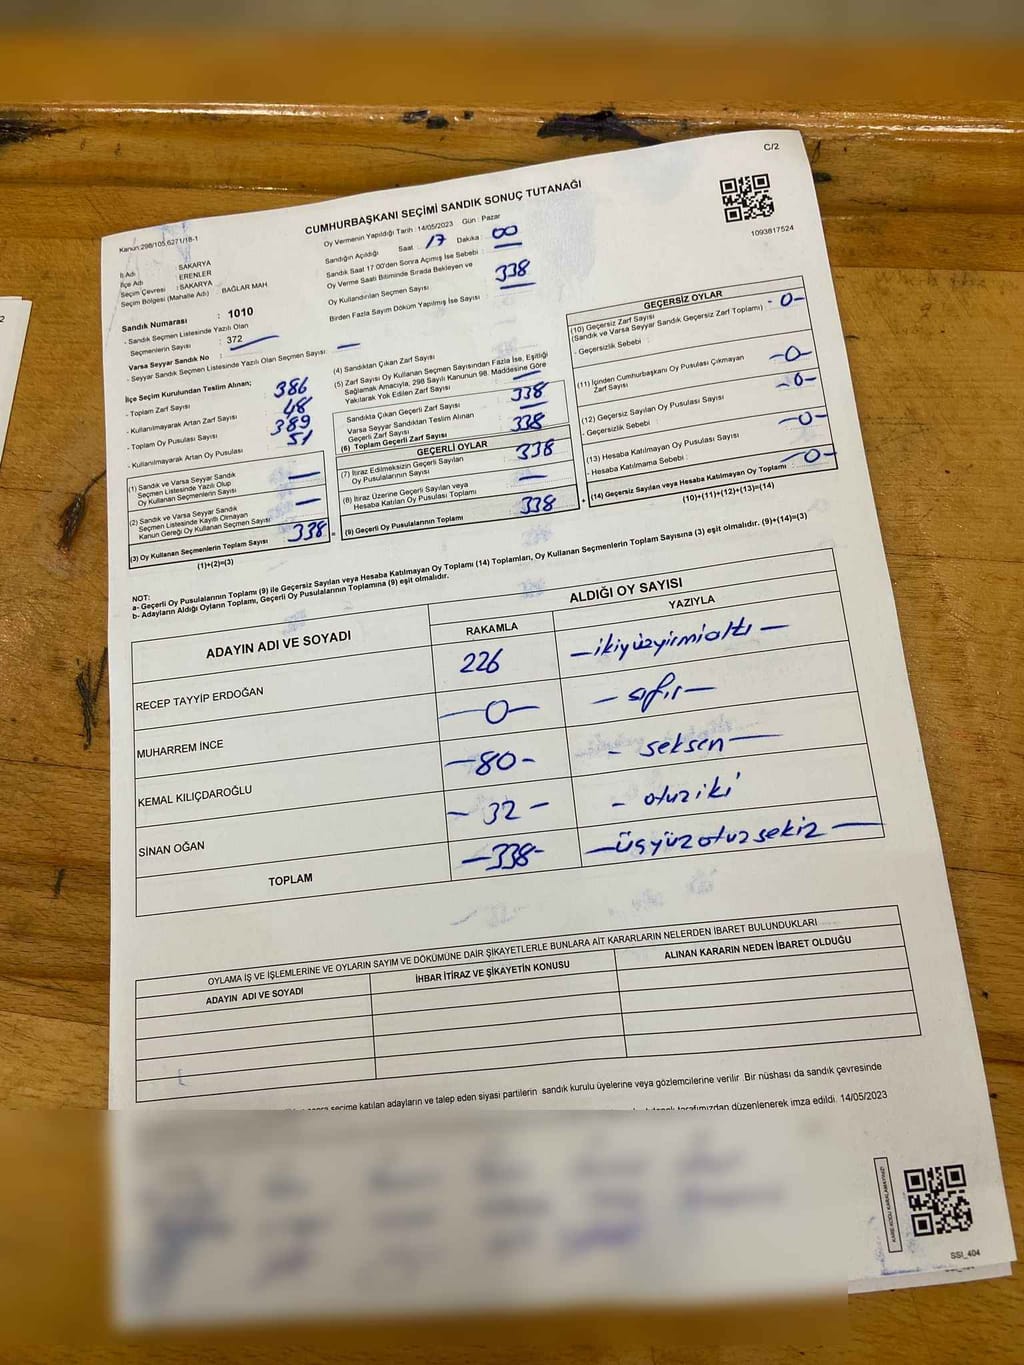 C/2
CUMHURBAŞKANI SEÇİMİ SANDIK SONUÇ TUTANAĞI
1093817524
Kanun:298/105,6271/18-1
Oy Vermenin Yapıldığı Tarih : 14/05/2023 Gün : Pazar
Sandığın Açıldığı Saat : 17 Dakika : 00
Sandık Saat 17:00'den Sonra Açılmış İse Sebebi :
Oy Verme Saati Bitiminde Sırada Bekleyen ve
Oy Kullandırılan Seçmen Sayısı : 338
Birden Fazla Sayım Döküm Yapılmış İse Sayısı :
İl Adı : SAKARYA
İlçe Adı : ERENLER
Seçim Çevresi : SAKARYA
Seçim Bölgesi (Mahalle Adı) : BAĞLAR MAH
Sandık Numarası : 1010
- Sandık Seçmen Listesinde Yazılı Olan
Seçmenlerin Sayısı : 372
Varsa Seyyar Sandık No :
- Seyyar Sandık Seçmen Listesinde Yazılı Olan Seçmen Sayısı: —
İlçe Seçim Kurulundan Teslim Alınan;
- Toplam Zarf Sayısı : 386
- Kullanılmayarak Artan Zarf Sayısı : 48
- Toplam Oy Pusulası Sayısı : 389
- Kullanılmayarak Artan Oy Pusulası : 51
(1) Sandık ve Varsa Seyyar Sandık
Seçmen Listesinde Yazılı Olup
Oy Kullanan Seçmenlerin Sayısı —
(2) Sandık ve Varsa Seyyar Sandık
Seçmen Listesinde Kayıtlı Olmayan
Kanun Gereği Oy Kullanan Seçmen Sayısı —
(3) Oy Kullanan Seçmenlerin Toplam Sayısı 338
(1)+(2)=(3)
(4) Sandıktan Çıkan Zarf Sayısı
(5) Zarf Sayısı Oy Kullanan Seçmen Sayısından Fazla İse, Eşitliği
Sağlamak Amacıyla, 298 Sayılı Kanunun 98. Maddesine Göre
Yakılarak Yok Edilen Zarf Sayısı —
Sandıkta Çıkan Geçerli Zarf Sayısı 338
Varsa Seyyar Sandıktan Teslim Alınan
Geçerli Zarf Sayısı
(6) Toplam Geçerli Zarf Sayısı 338
GEÇERLİ OYLAR
(7) İtiraz Edilmeksizin Geçerli Sayılan
Oy Pusulalarının Sayısı 338
(8) İtiraz Üzerine Geçerli Sayılan veya
Hesaba Katılan Oy Pusulası Toplamı —
(9) Geçerli Oy Pusulalarının Toplamı 338
GEÇERSİZ OYLAR
(10) Geçersiz Zarf Sayısı
(Sandık ve Varsa Seyyar Sandık Geçersiz Zarf Toplamı) -0-
- Geçersizlik Sebebi :
(11) İçinden Cumhurbaşkanı Oy Pusulası Çıkmayan
Zarf Sayısı -0-
(12) Geçersiz Sayılan Oy Pusulası Sayısı -0-
- Geçersizlik Sebebi :
(13) Hesaba Katılmayan Oy Pusulası Sayısı -0-
- Hesaba Katılmama Sebebi :
(14) Geçersiz Sayılan veya Hesaba Katılmayan Oy Toplamı -0-
(10)+(11)+(12)+(13)=(14)
NOT:
a- Geçerli Oy Pusulalarının Toplamı (9) ile Geçersiz Sayılan veya Hesaba Katılmayan Oy Toplamı (14) Toplamları, Oy Kullanan Seçmenlerin Toplam Sayısına (3) eşit olmalıdır. (9)+(14)=(3)
b- Adayların Aldığı Oyların Toplamı, Geçerli Oy Pusulalarının Toplamına (9) eşit olmalıdır.
ADAYIN ADI VE SOYADI
ALDIĞI OY SAYISI
RAKAMLA YAZIYLA
RECEP TAYYİP ERDOĞAN 226 — ikiyüzyirmialtı —
MUHARREM İNCE —0— — sıfır —
KEMAL KILIÇDAROĞLU —80— - seksen —
SİNAN OĞAN — 32 — - otuziki
TOPLAM —338— — üçyüzotuzsekiz —
OYLAMA İŞ VE İŞLEMLERİNE VE OYLARIN SAYIM VE DÖKÜMÜNE DAİR ŞİKAYETLERLE BUNLARA AİT KARARLARIN NELERDEN İBARET BULUNDUKLARI
ADAYIN ADI VE SOYADI İHBAR İTİRAZ VE ŞİKAYETİN KONUSU ALINAN KARARIN NEDEN İBARET OLDUĞU
seçime katılan adayların ve talep eden siyasi partilerin sandık kurulu üyelerine veya gözlemcilerine verilir. Bir nüshası da sandık çevresinde
tarafımızdan düzenlenerek imza edildi. 14/05/2023
SSI_404